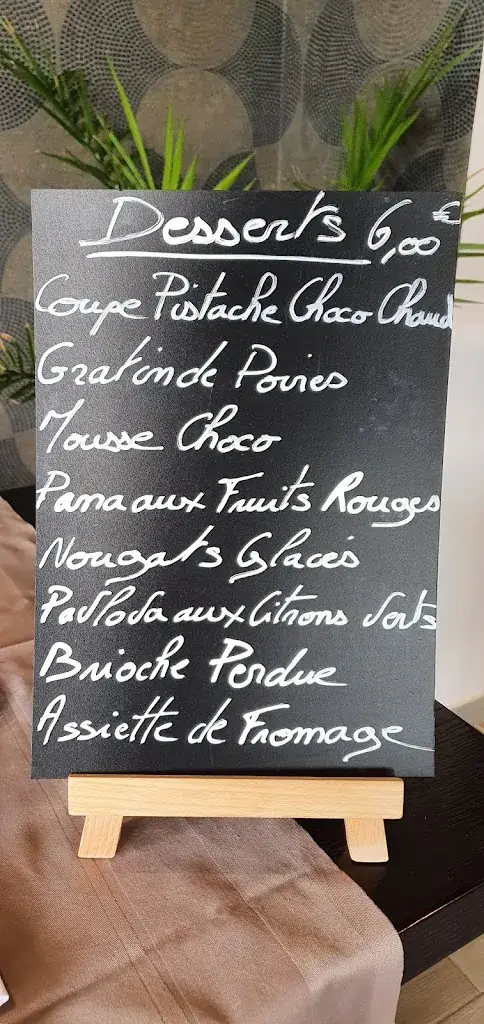 Desserts 6,00€
Coupe Pistache Choco Chaud
Gratin de Poires
Mousse Choco
Pana aux Fruits Rouges
Nougats Glacés
Pavlova aux Citrons Verts
Brioche Perdue
Assiette de Fromage